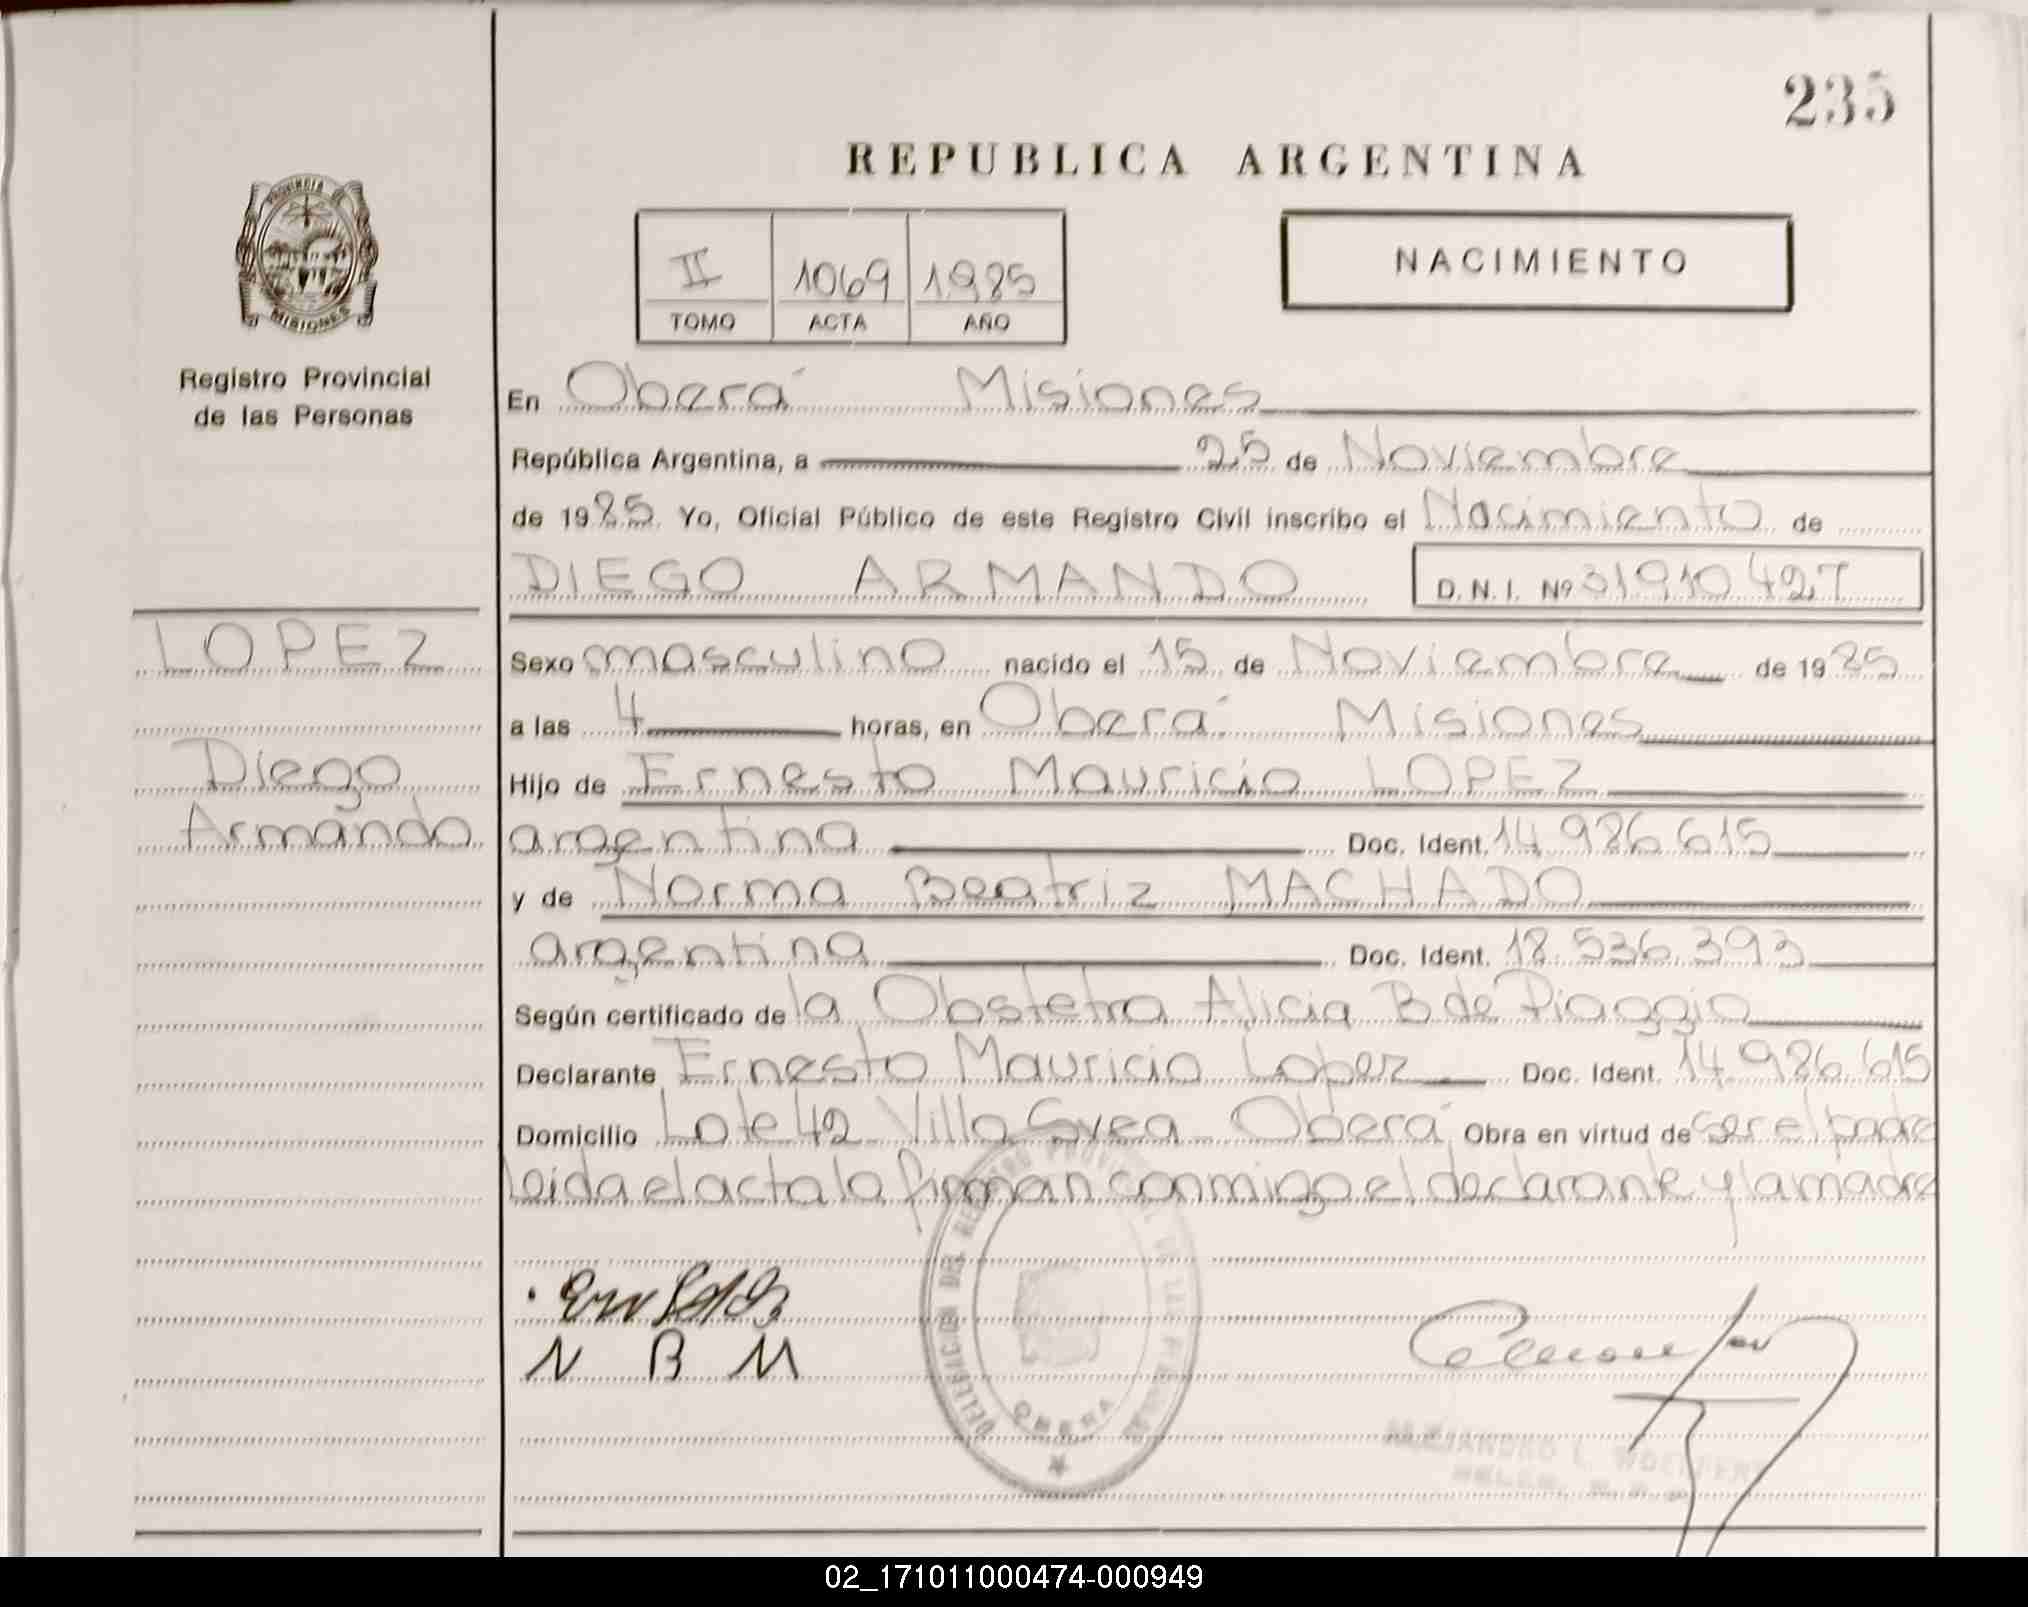 235
REPUBLICA ARGENTINA
PROVINCIA
MISIONES
Registro Provincial
de las Personas
II 1069 1985
TOMO ACTA AÑO
NACIMIENTO
En Oberá Misiones
República Argentina, a 25 de Noviembre
de 1985. Yo, Oficial Público de este Registro Civil inscribo el Nacimiento de
DIEGO ARMANDO D. N. I. Nº 31910427
LOPEZ
Diego
Armando
Sexo masculino nacido el 15 de Noviembre de 1985
a las 4 horas, en Oberá Misiones
Hijo de Ernesto Mauricio LOPEZ
argentina Doc. Ident. 14.986.615
y de Norma Beatriz MACHADO
argentina Doc. Ident. 18.536.393
Según certificado de la Obstetra Alicia B de Piaggio
Declarante Ernesto Mauricio Lopez Doc. Ident. 14.986.615
Domicilio Lote 42 Villa Svea Oberá Obra en virtud de ser el padre
leida el acta la firman conmigo el declarante y la madre
N B M
DELEGACION DEL REGISTRO PROVINCIAL DE LAS PERSONAS
OBERA
ALEJANDRO L.
02_171011000474-000949